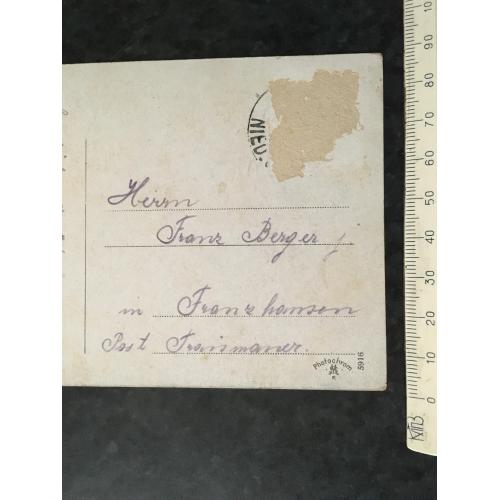 NIED
Herrn
Franz Berger
in Franzhausen
Post Traismauer.
Photochrom
5916
100
90
80
70
60
50
40
30
20
10
0